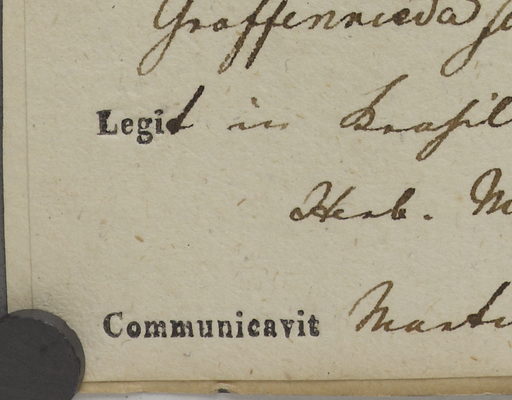 Graffenrieda
Legit in Brasil
Herb. M
Communicavit Marti